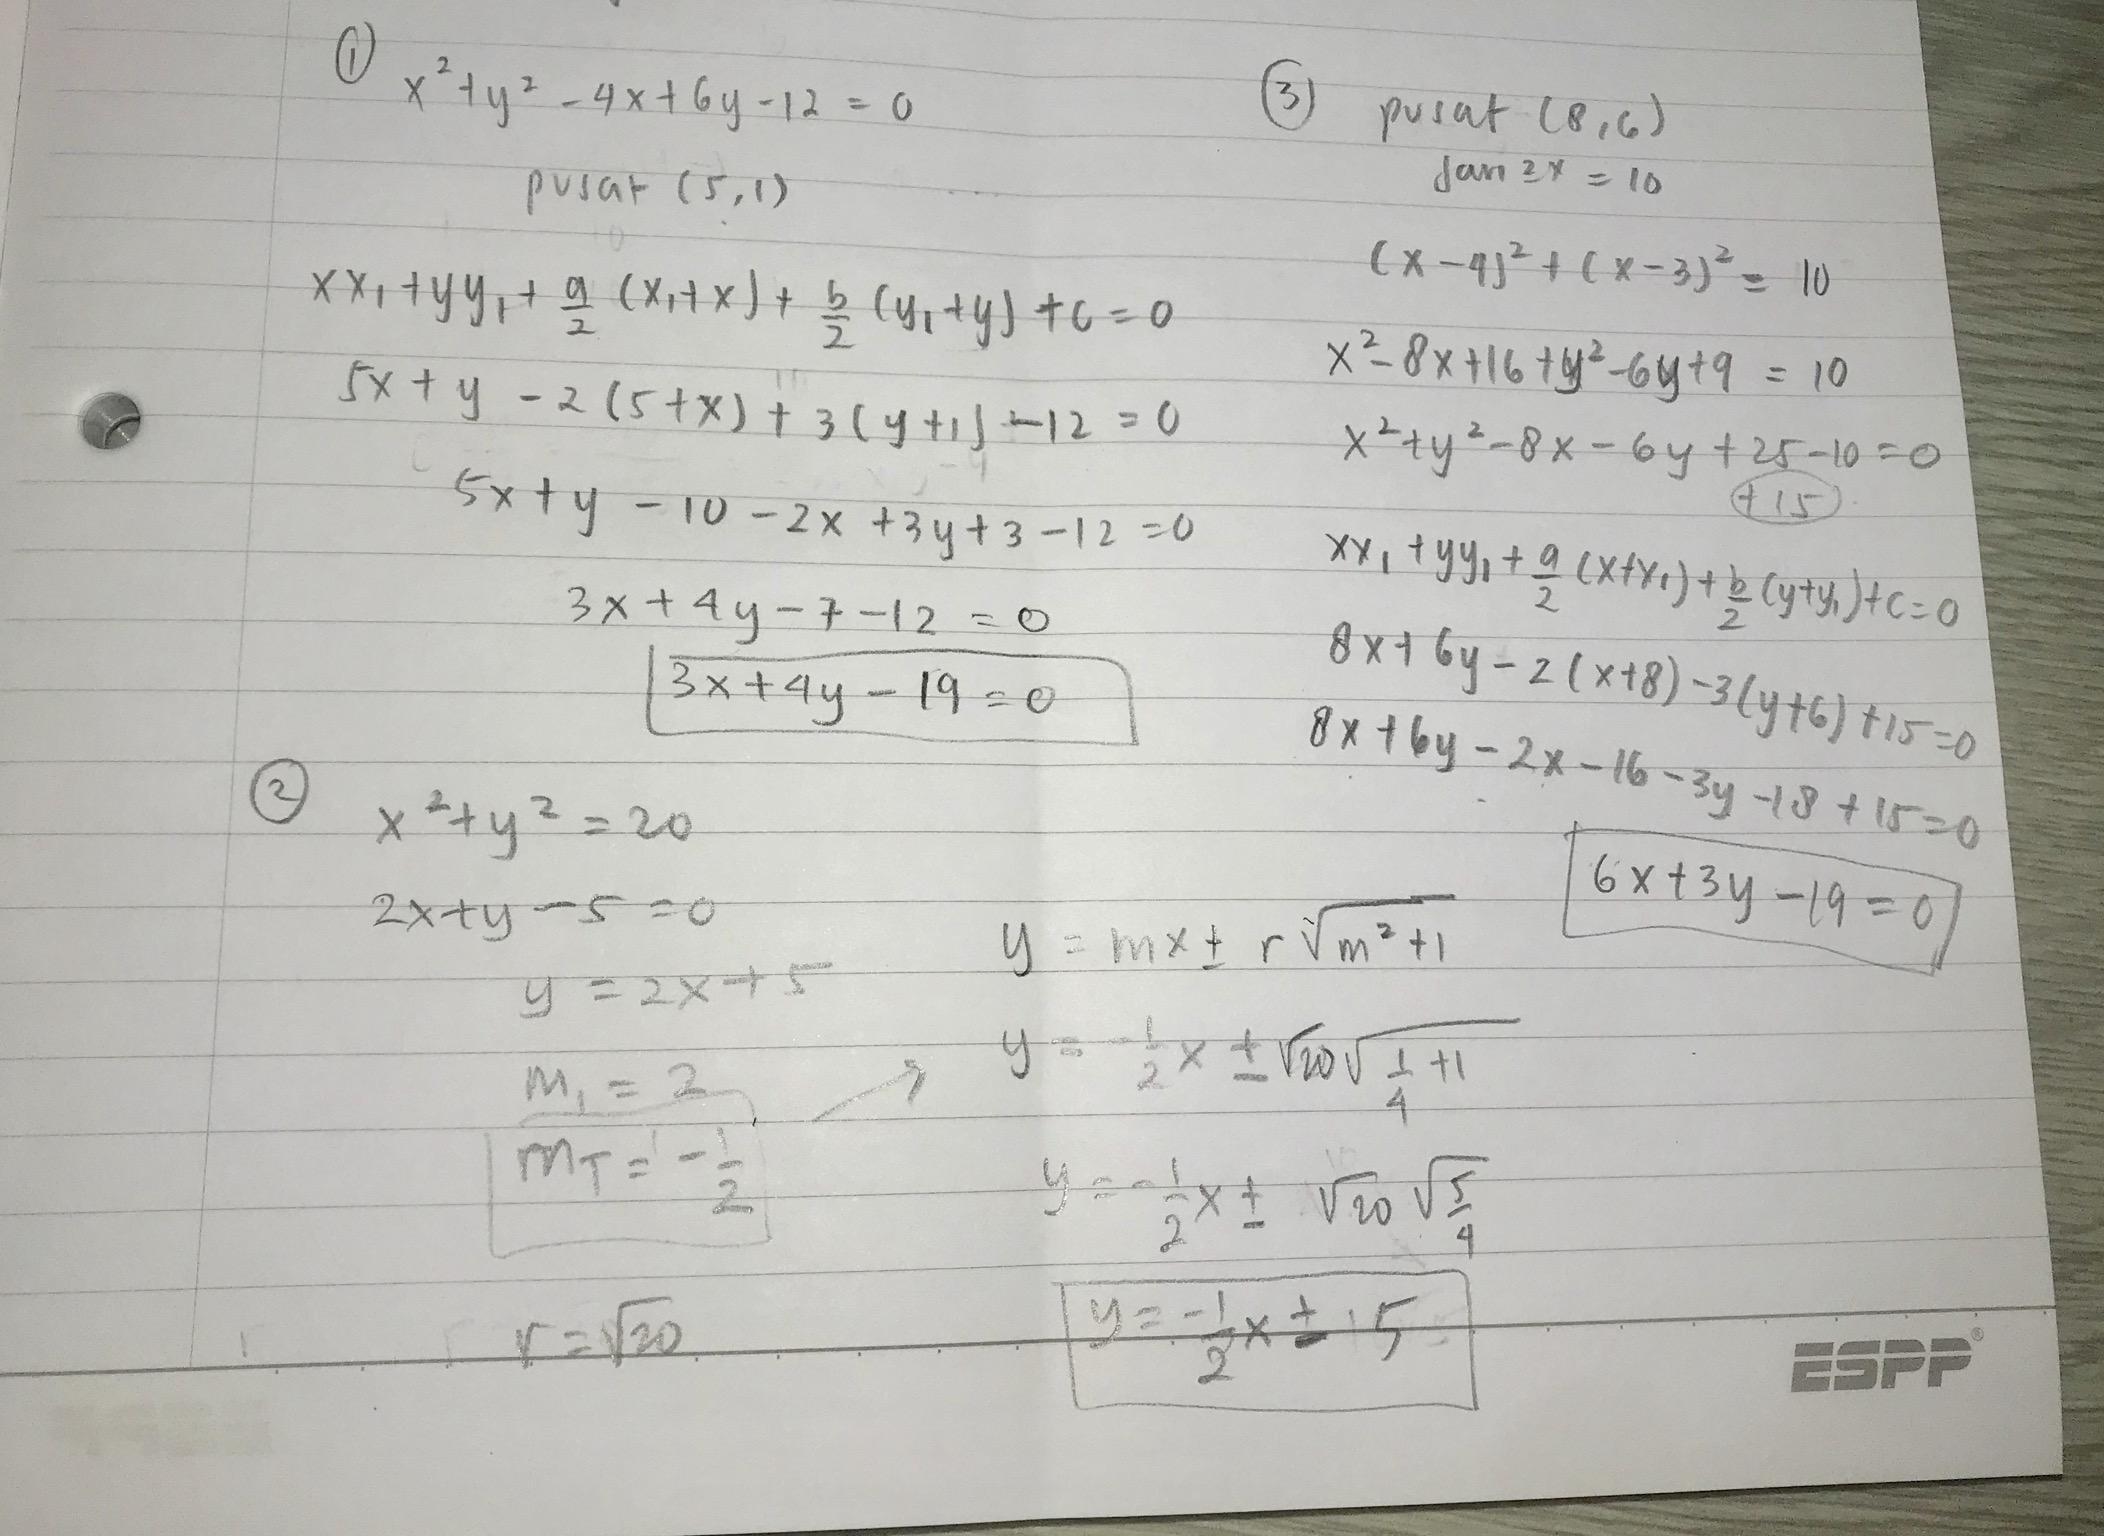 ① x² + y² - 4x + 6y - 12 = 0
pusat (5,1)
xx₁ + yy₁ + a/2 (x₁+x) + b/2 (y₁+y) + c = 0
5x + y - 2 (5+x) + 3 (y+1) - 12 = 0
5x + y - 10 - 2x + 3y + 3 - 12 = 0
3x + 4y - 7 - 12 = 0
3x + 4y - 19 = 0
② x² + y² = 20
2x + y - 5 = 0
y = 2x + 5
m₁ = 2
mT = -1/2
r = √20
y = mx ± r √m²+1
y = -1/2 x ± √20 √1/4 +1
y = -1/2 x ± √20 √5/4
y = -1/2 x ± 5
③ pusat (8,6)
jari 2x = 10
(x-4)² + (x-3)² = 10
x² - 8x + 16 + y² - 6y + 9 = 10
x² + y² - 8x - 6y + 25 - 10 = 0
+15
xx₁ + yy₁ + a/2 (x+x₁) + b/2 (y+y₁) + c = 0
8x + 6y - 2 (x+8) - 3 (y+6) + 15 = 0
8x + 6y - 2x - 16 - 3y - 18 + 15 = 0
6x + 3y - 19 = 0
ESPP®